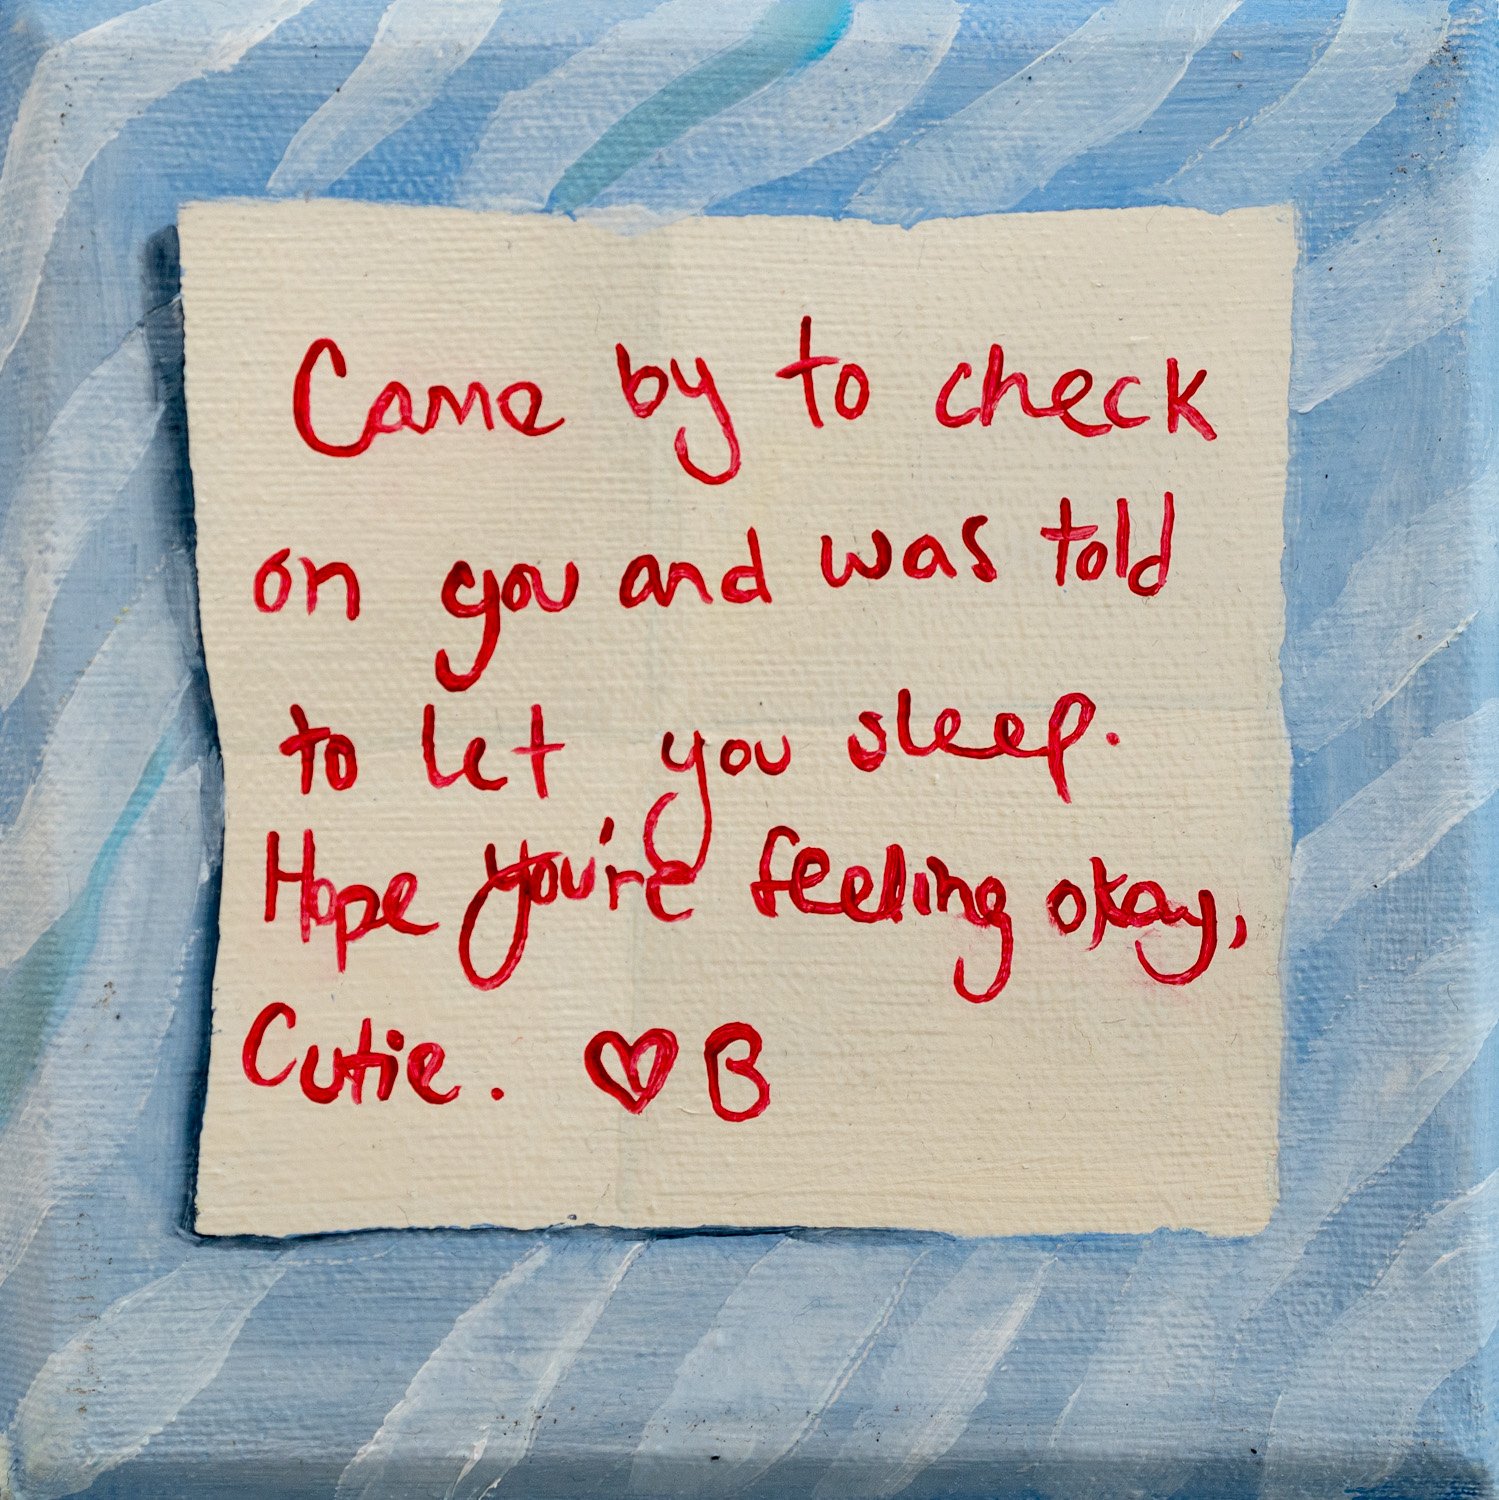 Came by to check
on you and was told
to let you sleep.
Hope you're feeling okay,
Cutie. ♡B